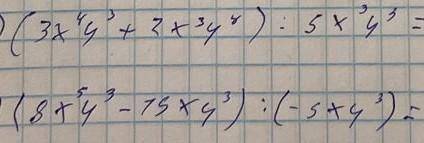 )(3x⁴y³ + 2x³y⁴) : 5x³y³ =
)(8x⁵y³ - 15xy³) : (-5xy³) =